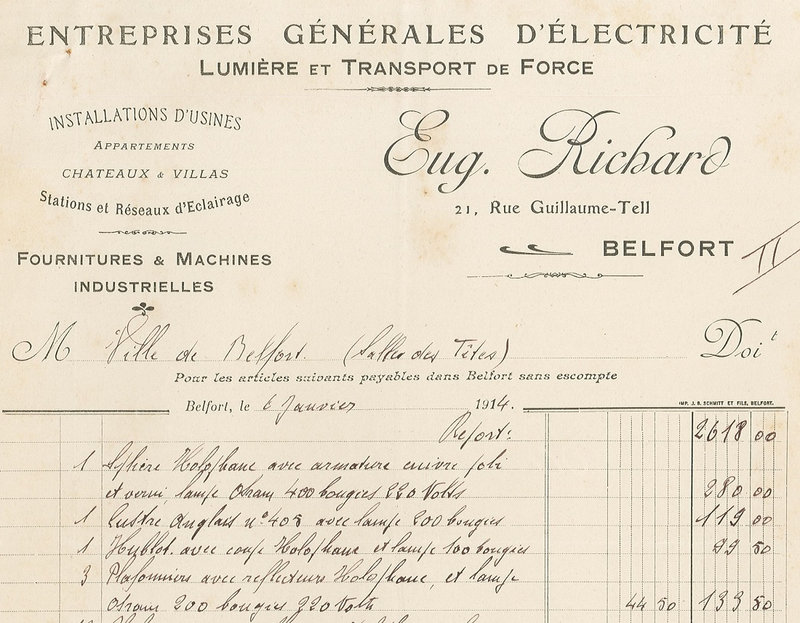 ENTREPRISES GÉNÉRALES D'ÉLECTRICITÉ
LUMIÈRE ET TRANSPORT DE FORCE
INSTALLATIONS D'USINES
APPARTEMENTS
CHATEAUX & VILLAS
Stations et Réseaux d'Eclairage
FOURNITURES & MACHINES
INDUSTRIELLES
Eug. Richard
21, Rue Guillaume-Tell
BELFORT
II
M Ville de Belfort (Salle des Fêtes) Doit
Pour les articles suivants payables dans Belfort sans escompte
Belfort, le 6 Janvier 1914.
IMP. J. B. SCHMITT ET FILS, BELFORT.
Report: 2618 00
1 Sphère Holophane avec armature cuivre poli
et verni, lampe Osram 400 bougies 220 Volts 280 00
1 Lustre Anglais n° 405 avec lampe 200 bougies 119 00
1 Hublot avec coupe Holophane et lampe 100 bougies 99 50
3 Plafonniers avec reflecteurs Holophane, et lampe
Osram 200 bougies 220 Volts 44 50 133 50